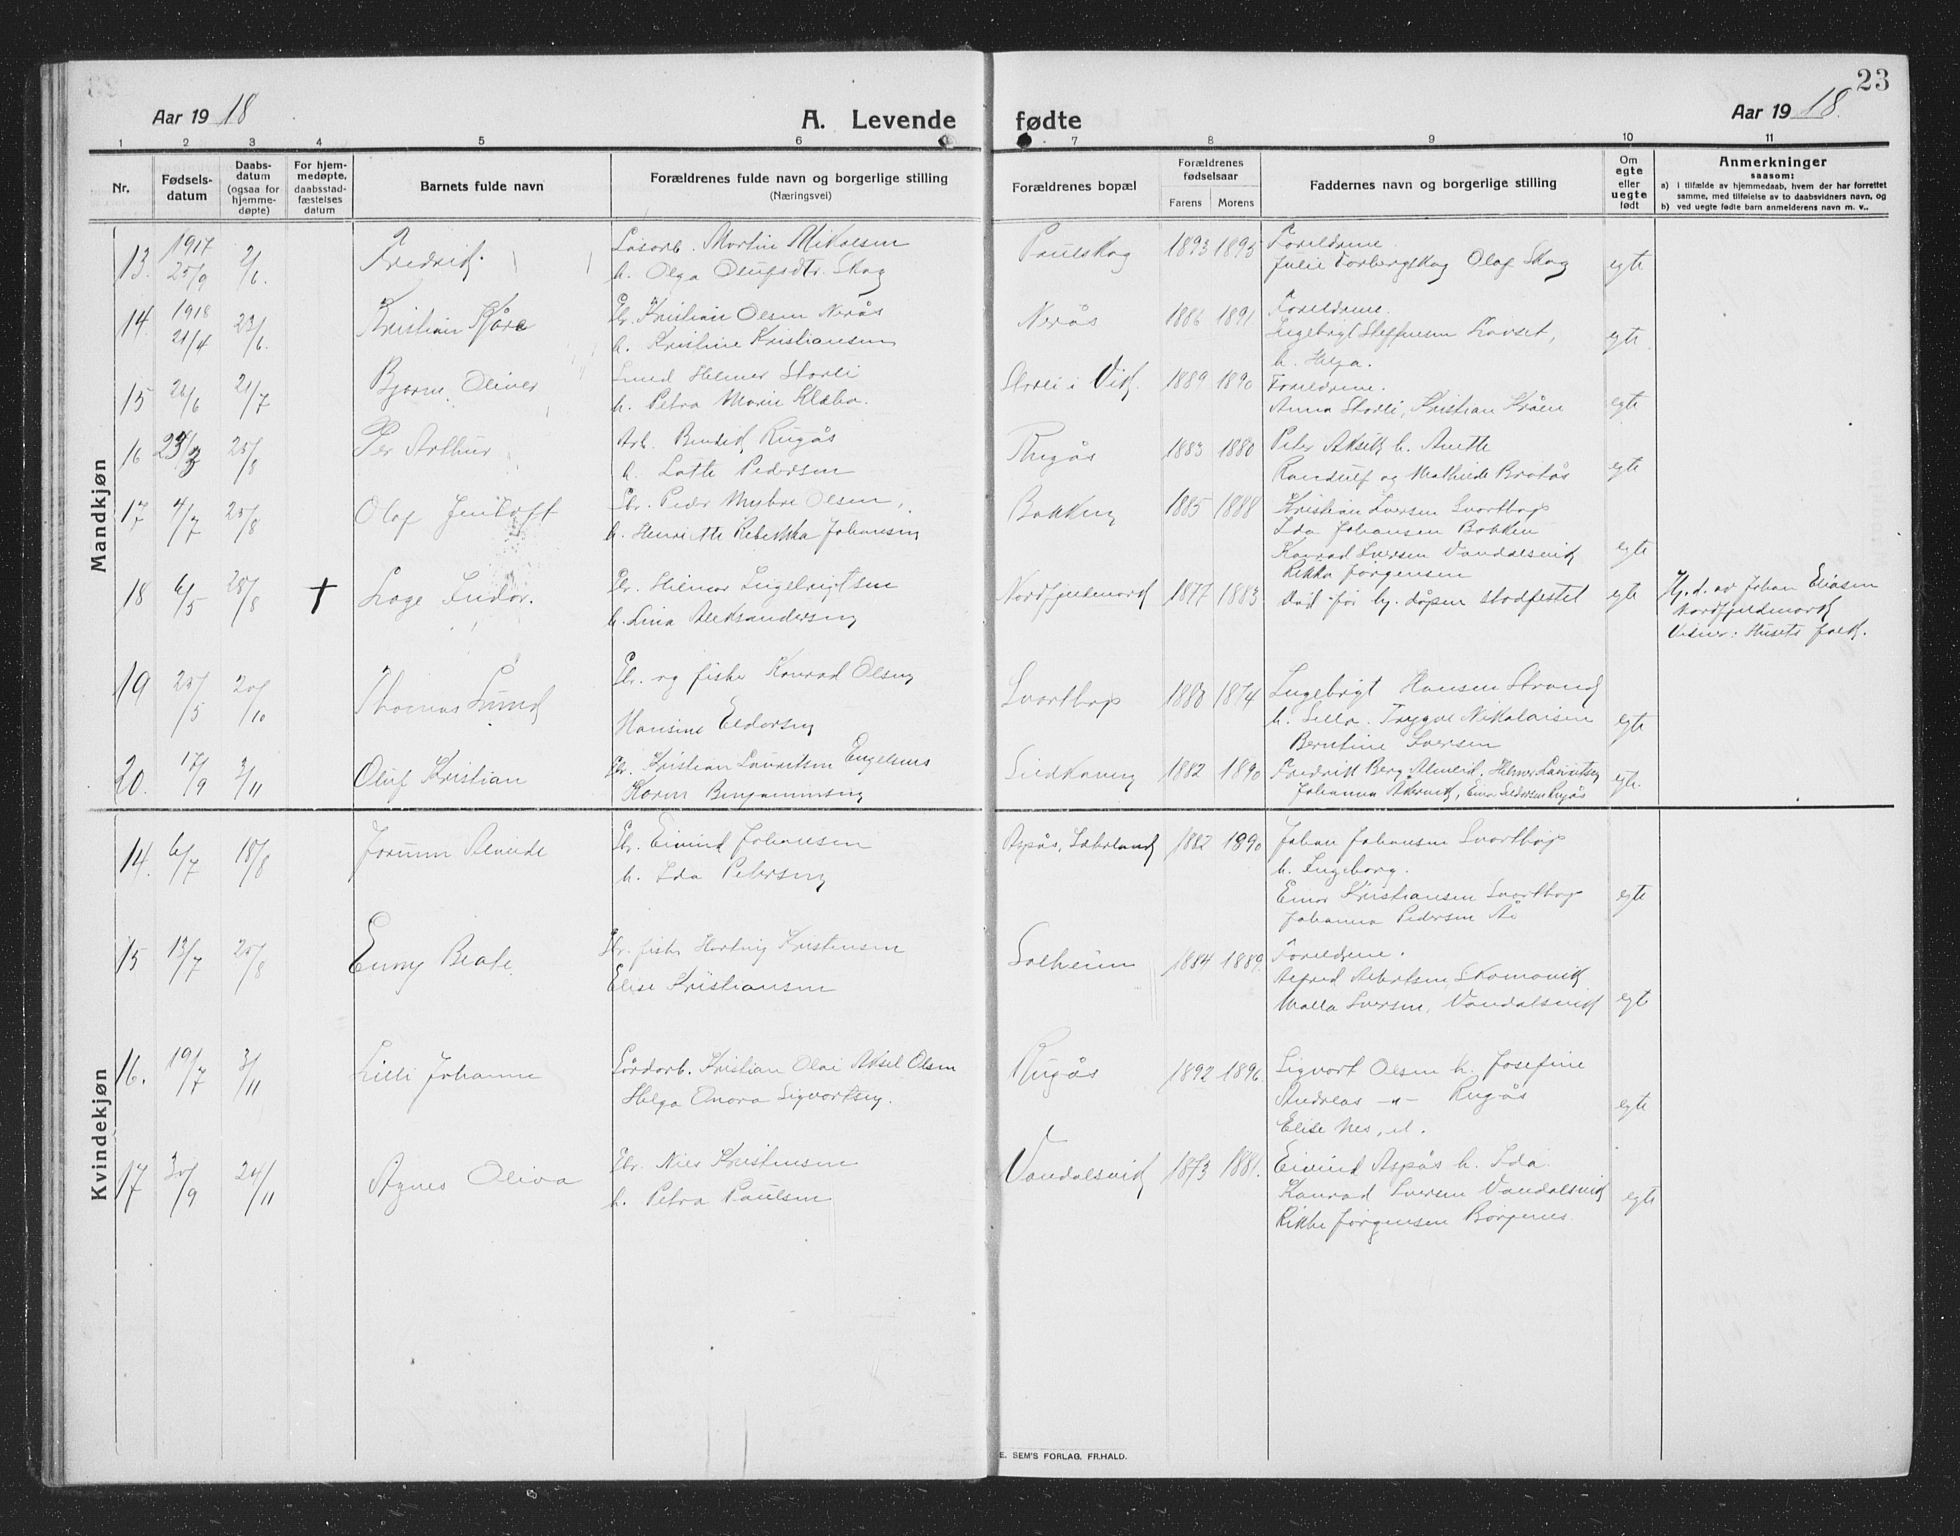 23
Aar 1918
A. Levende fødte
Aar 1918.
1 2 3 4 5 6 7 8 9 10 11
Nr.
Fødsels-
datum
Daabs-
datum
(ogsaa for
hjemme-
døpte)
For hjem-
medøpte,
daabsstad-
fæstelses
datum
Barnets fulde navn
Forældrenes fulde navn og borgerlige stilling
(Næringsvei)
Forældrenes bopæl
Forældrenes
fødselsaar
Farens Morens
Faddernes navn og borgerlige stilling
Om
egte
eller
uegte
født
Anmerkninger
saasom:
a) i tilfælde av hjemmedaab, hvem der har forrettet
samme, med tilføielse av to daabsvidners navn, og
b) ved uegte fødte barn anmelderens navn m. v..
Mandkjøn
13. 1917 25/9 2/6. Fredrik.
Løsarb. Martin Mikalsen
h. Olga Olufsdtr. Skog
Paulskog 1893 1895
Foreldrene.
Julie Torbergskog Olaf Skog
egte
14. 1918 21/4 23/6. Kristian Kåre
Gbr. Kristian Olsen Nerås
h. Kristine Kristiansen
Nerås 1886 1891
Foreldrene.
Ingebrigt Steffensen
h. Helga.
egte
15 26/6 21/7 Bjarne Oliver
Smed Helmer Storli
h. Petra Marie Klæbo.
Storli i Vik. 1889 1890
Foreldrene.
Anna Storli, Kristian Kråen
egte
16 25/8 Per Arthur
Arb. Bendik Rugås
h. Lotte Pedersen
Rugås 1883 1880
Peter Aksel h. Anette
Randulf og Mathilde Bråtås
egte
17 4/7 25/8 Olaf Jentoft
Gbr. Peder Olsen,
h. Henriette Rebekka Johansen
Bakken 1885 1888
Kristian Iversen Svorthop
Ida Johansen Bakken
Konrad Iversen Vandalsvik
Rikke Jørgensen
egte
18 6/5 25/8 † Lage Tudor.
Gbr. Hilmar Ingebrigtsen
h. Lina Aleksandersen
Nordfjeldmark 1877 1883.
Død før hj. dåpen stadfestet
egte
Hj. d. av Johan Eliasen
Nordfjeldmark
Vidner: Husets folk.
19 25/5 20/10 Thomas Lund
Gbr. og fisker Konrad Olsen
Hansine Eldorsen
Svorthop 1880 1874
Ingebrigt Hansen Strand
h. Lella. Trygve Nikolaisen
Berntine Iversen
egte
20. 17/9 3/11 Oluf Kristian
Gbr. Kristian Lauritsen Engelsnes
Karen Benjaminsen
1882 1890
Fredrik Berg Almeid. Helmer Lauritsen
Johanna Åkervik,
egte.
Kvindekjøn
14. 6/7 18/8 Jorunn Alvide
Gbr. Eivind Johansen
h. Ida Petersen
Aspås, 1882 1890
Johan Johansen Svorthop
h. Ingeborg.
Einar Kristiansen Svorthop
Johanna Pedersen Å
egte
15 13/7 25/8 Enny Beate.
Gbr. fisk. Hartvig Kristensen
Elise Kristiansen
Solheim 1884 1889.
Foreldrene.
Alfred Albertsen, Skomovik
Malla Iversen, Vandalsvik
egte
16. 19/7 3/11 Lilli Johanne
Gårdarb. Kristian Olai Aksel Olsen
Helga Onora Sigvartsen.
Rugås 1892 1896.
Sigvart Olsen h. Josefine
Andreas -"- Rugås
Elise Nes, et.
egte
17 30/9 24/11 Agnes Oliva
Gbr. Nils Kristensen
h. Petra Paulsen
Vandalsvik 1873 1881.
Eivind Aspås h. Ida.
Konrad Iversen Vandalsvik
Rikke Jørgensen Borgenes.
egte
E. SEM'S FORLAG, FR.HALD.